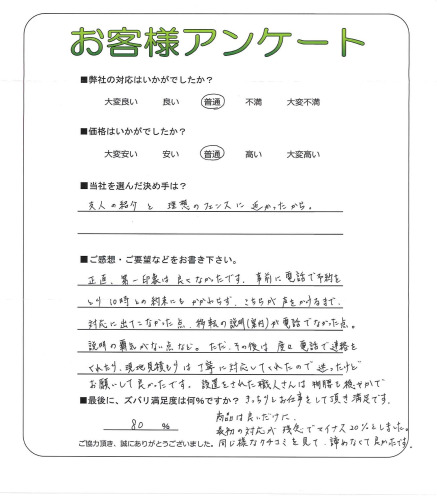 お客様アンケート
■弊社の対応はいかがでしたか？
大変良い 良い 普通 不満 大変不満
■価格はいかがでしたか？
大変安い 安い 普通 高い 大変高い
■当社を選んだ決め手は？
友人の紹介と 理想のフェンスに近かったから。
■ご感想・ご要望などをお書き下さい。
正直、第一印象は良くなかったです。事前に電話で予約を
とり10時との約束にもかかわらず、こちらが声をかけるまで、
対応に出てこなかった点、移転の説明(案内)が電話でなかった点。
説明の覇気がない点など。ただ、その後は 度々電話で連絡を
くれたり、現地見積もりは丁寧に対応してくれたので迷ったけど
お願いして良かったです。設置をされた職人さんは物腰も穏やかで
きっちりとお仕事をして頂き満足です。
■最後に、ズバリ満足度は何％ですか？
80 ％
商品は良いだけに、
最初の対応が残念でマイナス20％としました。
同じ様なクチコミを見て、諦めなくて良かったです。
ご協力頂き、誠にありがとうございました。